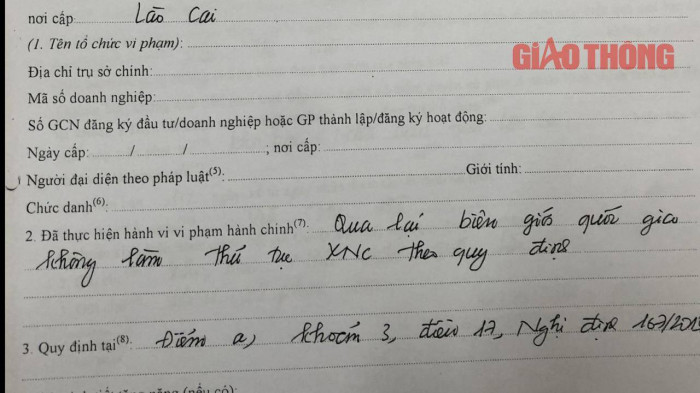 nơi cấp Lào Cai
(1. Tên tổ chức vi phạm):
GIAO THÔNG
Địa chỉ trụ sở chính:
Mã số doanh nghiệp:
Số GCN đăng ký đầu tư/doanh nghiệp hoặc GP thành lập/đăng ký hoạt động:
Ngày cấp: / / ; nơi cấp:
Người đại diện theo pháp luật(5): Giới tính:
Chức danh(6):
2. Đã thực hiện hành vi vi phạm hành chính(7): Qua lại biên giới quốc gia
không làm thủ tục XNC theo quy định
3. Quy định tại(8): Điểm a, khoản 3, điều 17, Nghị định 167/201
(nếu có):